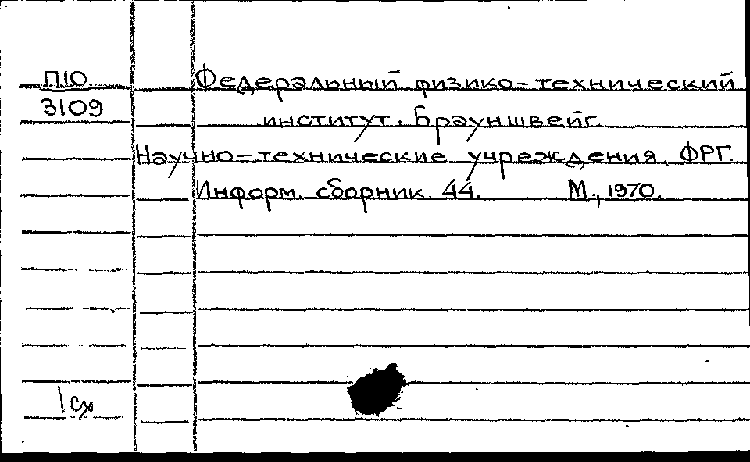 П10
3109
Федеральный физико-технический
институт. Брауншвейг.
Научно-технические учреждения ФРГ.
Информ. сборник 44. М., 1970.